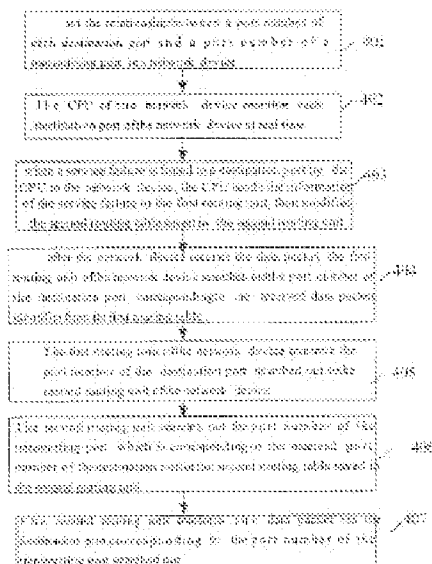 set the relationship between a port number of
each destination port and a port number of a
transmitting port in a network device
401
The CPU of the network device monitors each
destination port of the network device at real time
402
when a service failure is found in a destination port by the
CPU in the network device, the CPU sends the information
of the service failure to the first routing unit, then modifies
the second routing table saved in the second routing unit
403
after the network device receives the data packet, the first
routing unit of the network device searches out the port number of
the destination port corresponding to the received data packet
identifier from the first routing table
404
The first routing unit of the network device transmits the
port number of the destination port searched out to the
second routing unit of the network device
405
The second routing unit searches out the port number of the
transmitting port which is corresponding to the received port
number of the destination port in the second routing table saved in
the second routing unit
406
The second routing unit transmits the data packet via the
port corresponding to the port number of the
transmitting port searched out
407